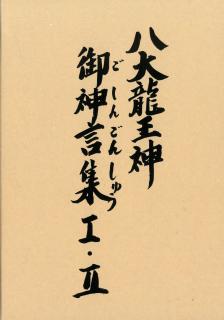 八大龍王神
御神言集 I・II
ごしんごんしゅう